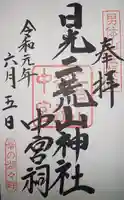 奉拝
日光二荒山神社
中宮祠
令和元年
六月五日